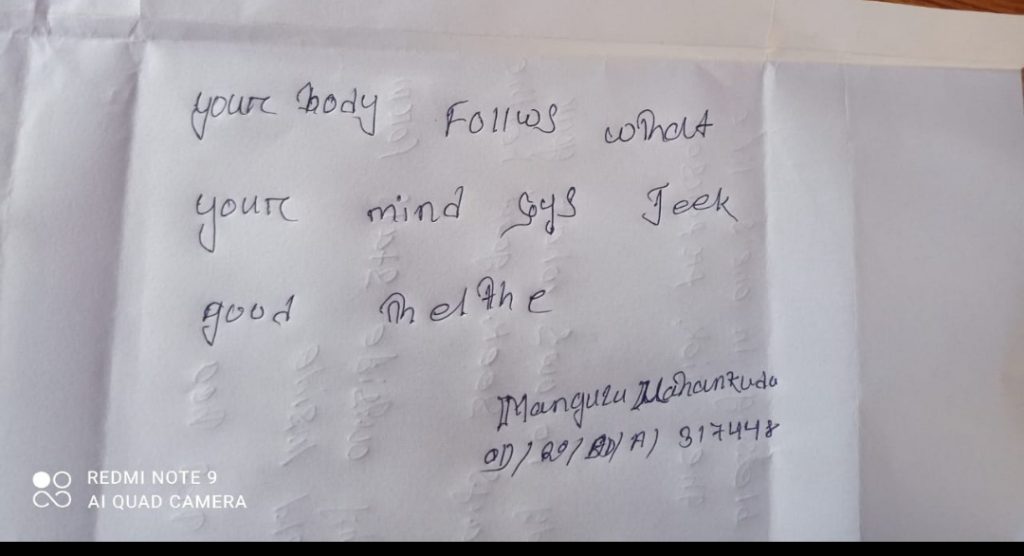 your body Follws what
your mind sys Teek
good helthe
Manguru Mahankuda
OD/20/BD/A/317448
REDMI NOTE 9
AI QUAD CAMERA